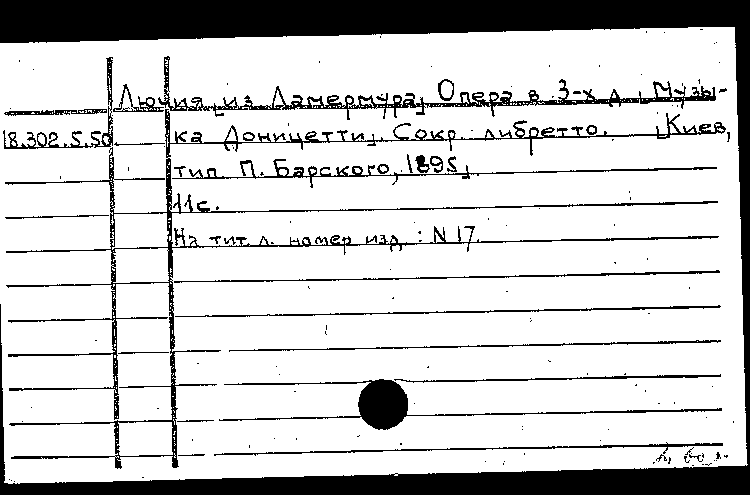 Лючия [из Ламермура] Опера в 3-х д. [Музы-
18.302.5.50 ка Доницетти]. Сокр. либретто. [Киев,
тип. П. Барского, 1895].
11 с.
На тит. л. номер изд.: N 17.